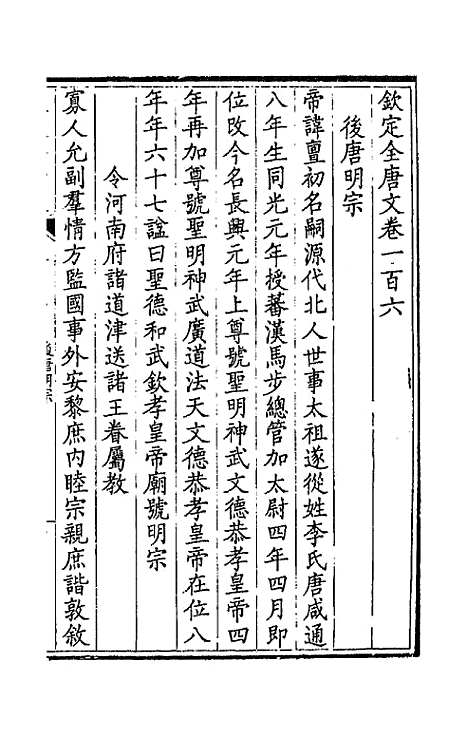 欽定全唐文卷一百六
後唐明宗
帝諱亶初名嗣源代北人世事太祖遂從姓李氏唐咸通
八年生同光元年授蕃漢馬步總管加太尉四年四月即
位改今名長興元年上尊號聖明神武文德恭孝皇帝四
年再加尊號聖明神武廣道法天文德恭孝皇帝在位八
年年六十七諡曰聖德和武欽孝皇帝廟號明宗
令河南府諸道津送諸王眷屬教
寡人允副羣情方監國事外安黎庶內睦宗親庶諧敦敘
後唐明宗
一